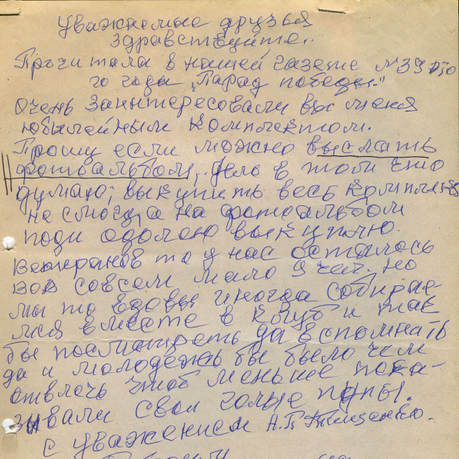 уважаемые друзья
здравствуйте.
Прочитали в нашей газете №39
го года „Парад победы."
Очень заинтересовали вы меня
юбилейным комплектом.
Прошу если можно выслать
фотоальбом. Дело в том что
думаю; выкупить весь комплект
не смогу а на фотоальбом
поди одолею выкуплю.
Ветеранов то у нас осталось
вов совсем мало 9 чел. но
мы то вдовы иногда собирае
мся вместе в клуб и так
бы посмотреть да вспомнать
да и молодежь бы было чем
отвлечь чтоб меньше пока-
зывали свои голые пупы.
с уважением А.П.